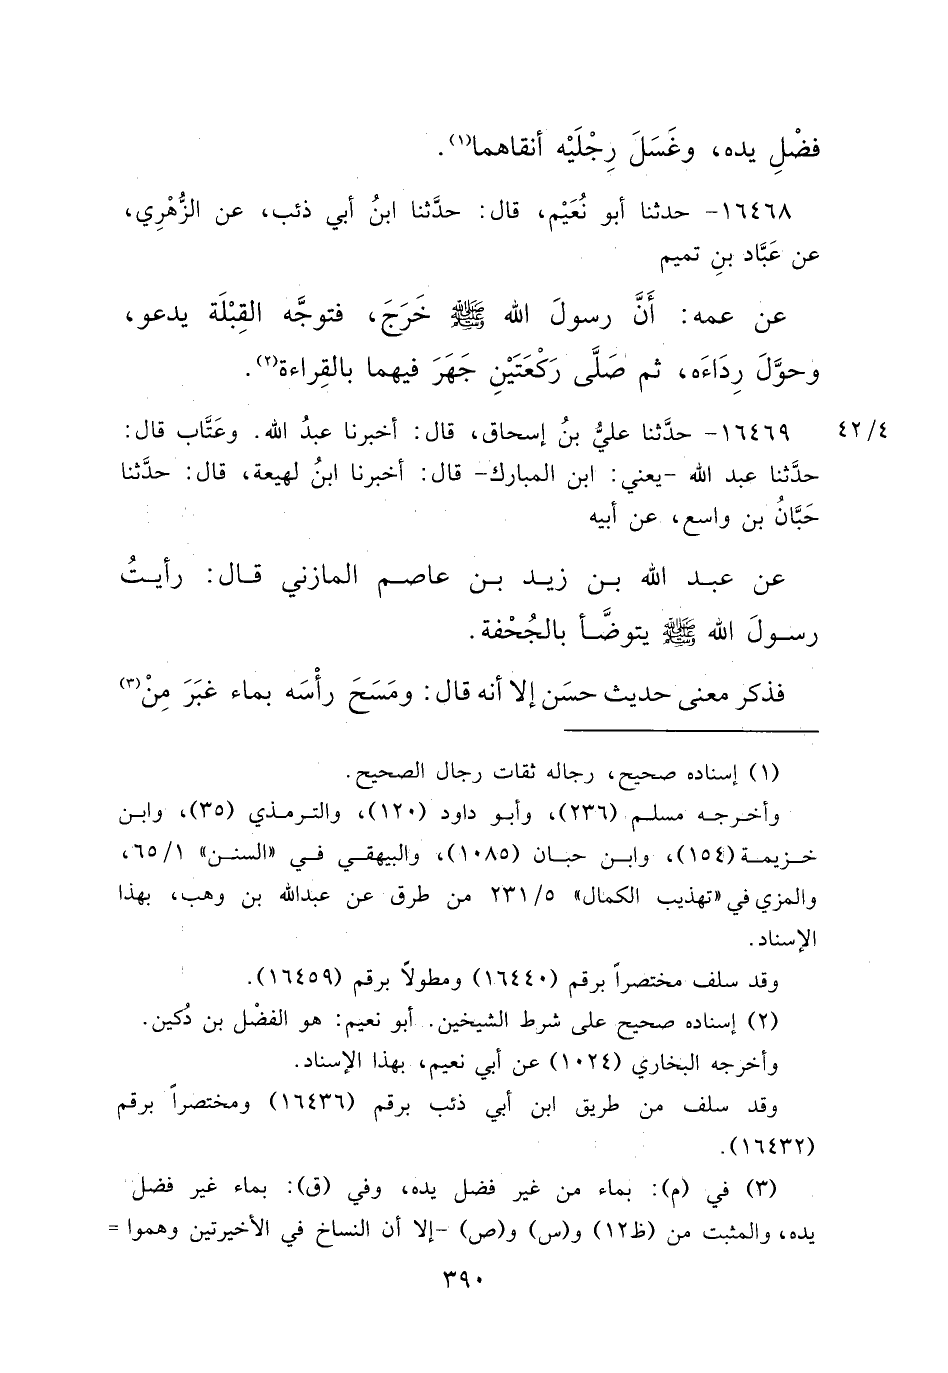 فضْلِ يده، وغَسَلَ رِجْلَيْه أنقاهما(١).
١٦٤٦٨- حدثنا أبو نُعَيْم، قال: حدَّثنا ابنُ أبي ذئب، عن الزُّهْرِي،
عن عَبَّاد بنِ تميم
عن عمه: أَنَّ رسولَ الله ﷺ خَرَجَ، فتوجَّه القِبْلَة يدعو،
وحوَّلَ رِدَاءَه، ثم صَلَّى رَكْعَتَيْنِ جَهَرَ فيهما بالقِراءة(٢).
٤٢/٤ ١٦٤٦٩- حدَّثنا عليُّ بنُ إسحاق، قال: أخبرنا عبدُ الله. وعَتَّاب قال:
حدَّثنا عبد الله -يعني: ابن المبارك- قال: أخبرنا ابنُ لهيعة، قال: حدَّثنا
حَبَّانُ بن واسع، عن أبيه
عن عبد الله بن زيد بن عاصم المازني قال: رأيتُ
رسولَ الله ﷺ يتوضَّأ بالجُحْفة.
فذكر معنى حديث حسَن إلا أنه قال: ومَسَحَ رأْسَه بماء غَبَرَ مِنْ(٣)
(١) إسناده صحيح، رجاله ثقات رجال الصحيح.
وأخرجه مسلم (٢٣٦)، وأبو داود (١٢٠)، والترمذي (٣٥)، وابن
خزيمة (١٥٤)، وابن حبان (١٠٨٥)، والبيهقي في «السنن» ٦٥/١،
والمزي في «تهذيب الكمال» ٢٣١/٥ من طرق عن عبدالله بن وهب، بهذا
الإسناد.
وقد سلف مختصراً برقم (١٦٤٤٠) ومطولاً برقم (١٦٤٥٩).
(٢) إسناده صحيح على شرط الشيخين. أبو نعيم: هو الفضْل بن دُكين.
وأخرجه البخاري (١٠٢٤) عن أبي نعيم، بهذا الإسناد.
وقد سلف من طريق ابن أبي ذئب برقم (١٦٤٣٦) ومختصراً برقم
(١٦٤٣٢).
(٣) في (م): بماء من غير فضل يده، وفي (ق): بماء غير فضل
يده، والمثبت من (ظ١٢) و(س) و(ص) -إلا أن النساخ في الأخيرتين وهموا =
٣٩٠